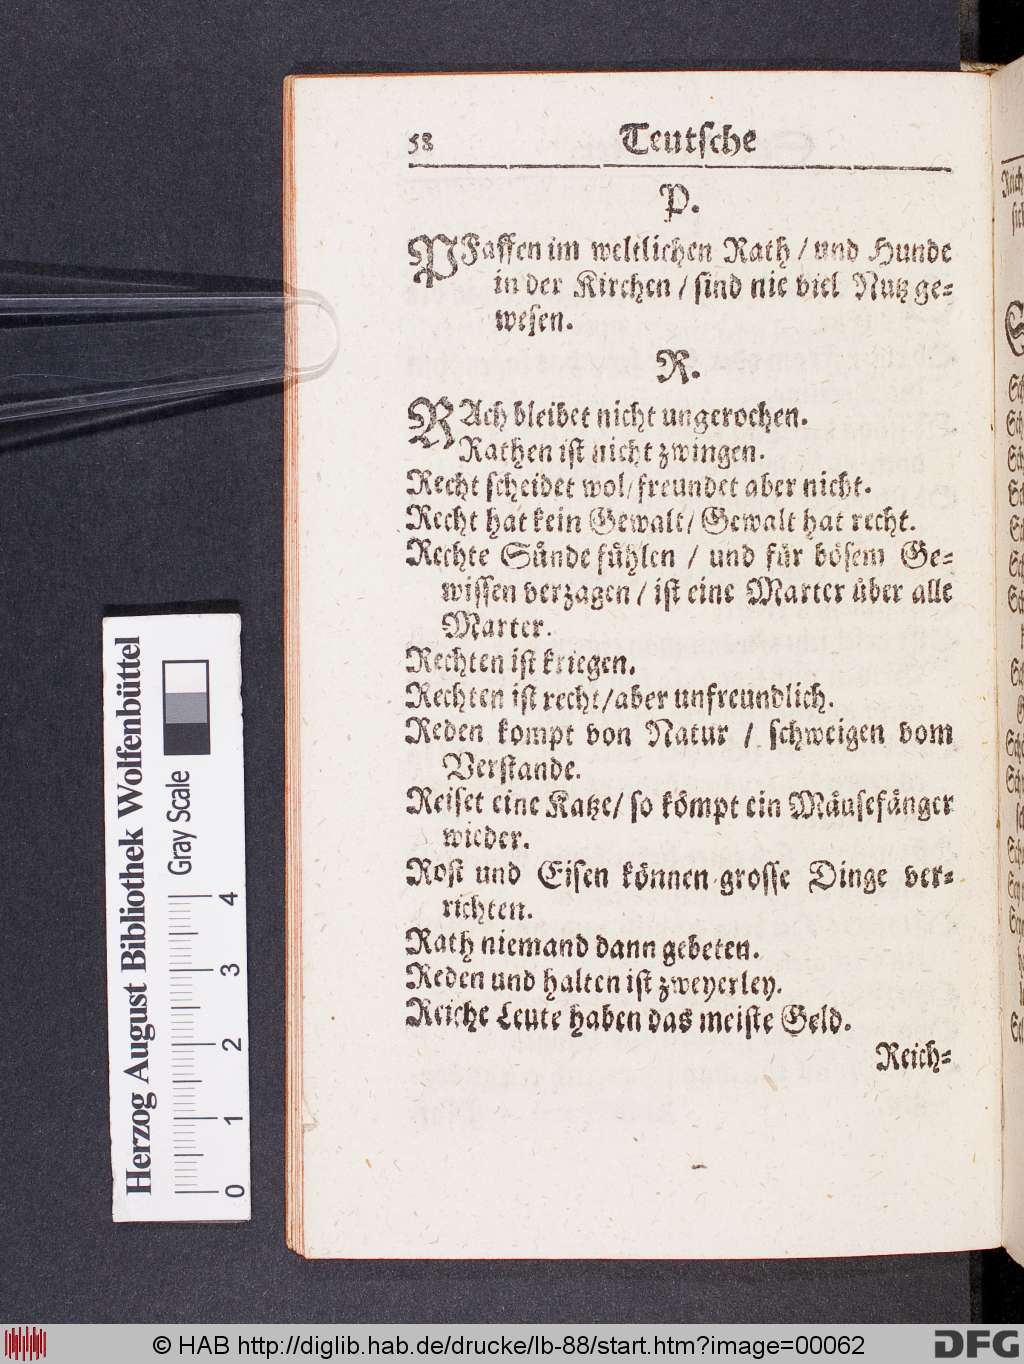 58 Teutsche
P.
PFaffen im weltlichen Rath / und Hunde
in der Kirchen / sind nie viel Nutz ge-
wesen.
R.
RAch bleibet nicht ungerochen.
Rathen ist nicht zwingen.
Recht scheidet wol / freundet aber nicht.
Recht hat kein Gewalt / Gewalt hat recht.
Rechte Sünde fühlen / und für bösem Ge-
wissen verzagen / ist eine Marter über alle
Marter.
Rechten ist kriegen.
Rechten ist recht / aber unfreundlich.
Reden kompt von Natur / schweigen vom
Verstande.
Reiset eine Katze / so kömpt ein Mäusefänger
wieder.
Rost und Eisen können grosse Dinge ver-
richten.
Rath niemand dann gebeten.
Reden und halten ist zweyerley.
Reiche Leute haben das meiste Geld.
Reich-
Herzog August Bibliothek Wolfenbüttel
Gray Scale
0 1 2 3 4
© HAB http://diglib.hab.de/drucke/lb-88/start.htm?image=00062
DFG